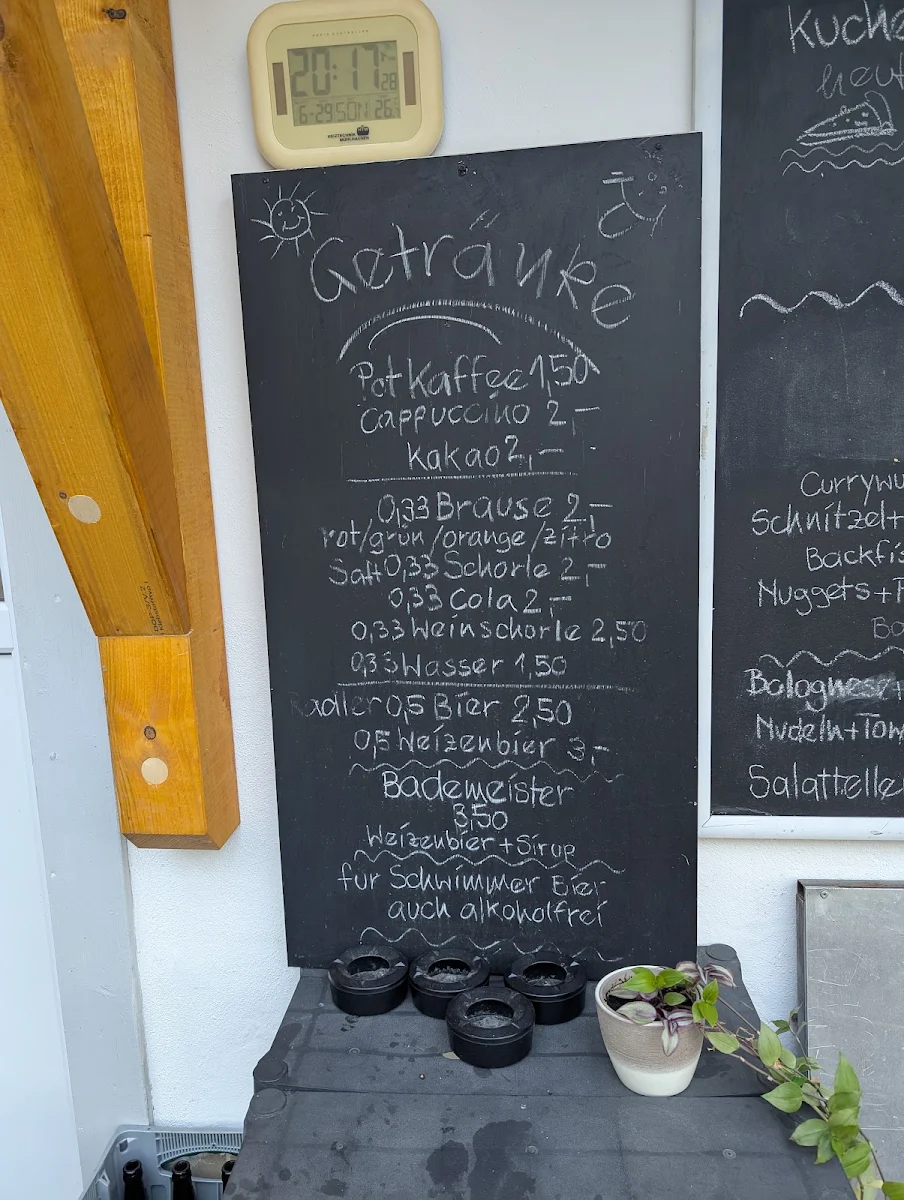 20:17 28
6-29 SUN 26
HAUSTECHNIK
MÜHLHAUSEN
Getränke
Pot Kaffee 1,50
Cappuccino 2,-
Kakao 2,-
0,33 Brause 2,-
rot/grün/orange/zitro
Saft 0,33 Schorle 2,-
0,33 Cola 2,-
0,33 Weinschorle 2,50
0,33 Wasser 1,50
Radler 0,5 Bier 2,50
0,5 Weizenbier 3,-
Bademeister
3,50
Weizenbier + Sirup
für Schwimmer Bier
auch alkoholfrei
Kuche
heut
Currywu
Schnitzel+
Backfis
Nuggets+P
Bo
Bolognes
Nudeln+Tom
Salattelle